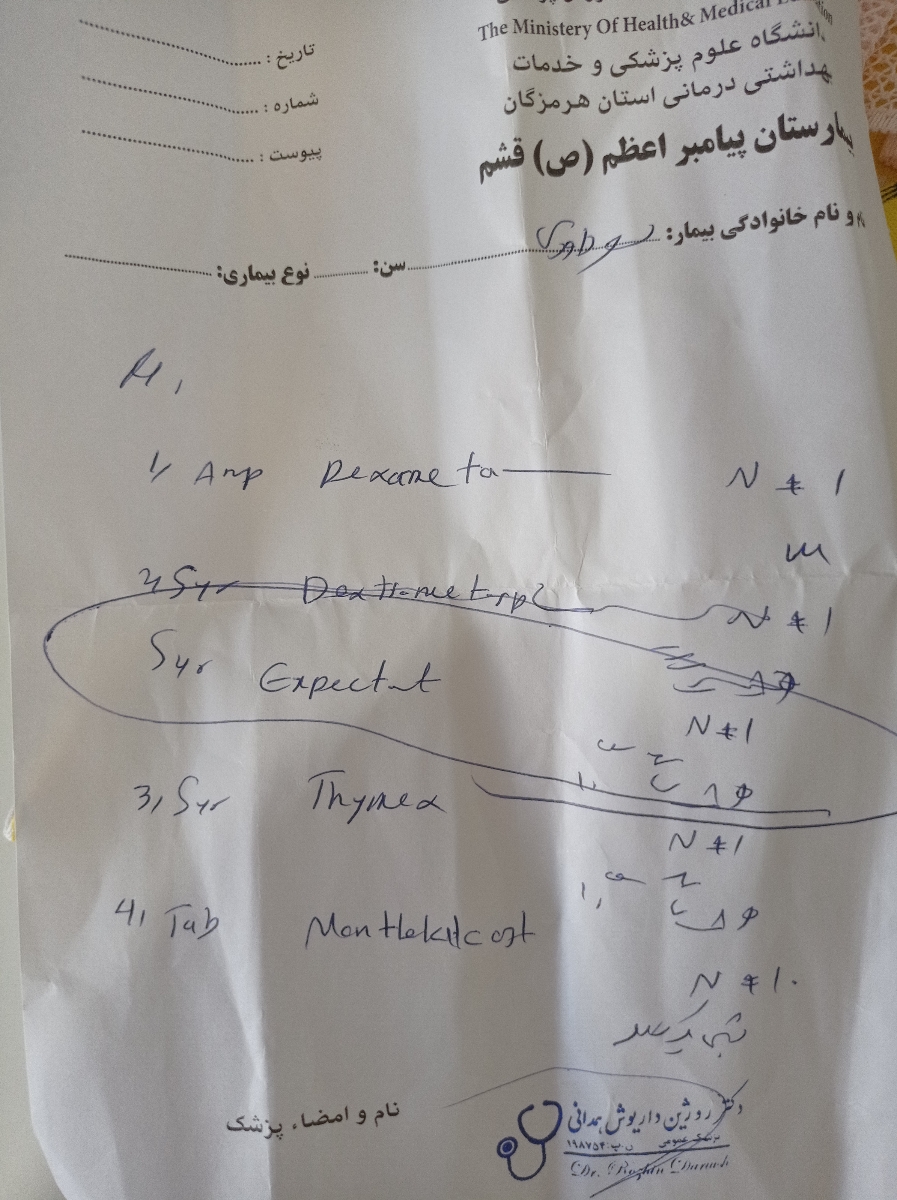 The Ministery Of Health& Medical
دانشگاه علوم پزشکی و خدمات
بهداشتی درمانی استان هرمزگان
بیمارستان پیامبر اعظم (ص) قشم
تاریخ :
شماره :
پیوست :
و نام خانوادگی بیمار:
سن: نوع بیماری:
1, Amp Dexameta N # 1
2, Syr Dextrometorp N # 1
Syr Expectat
N # 1
3, Syr Thymex
N # 1
4, Tab Montlekucast
N # 10
نام و امضاء پزشک
دکتر روژین داریوش همدانی
پزشک عمومی ن.پ: ۱۹۸۷۵۴
Dr. Rozhin Dariush